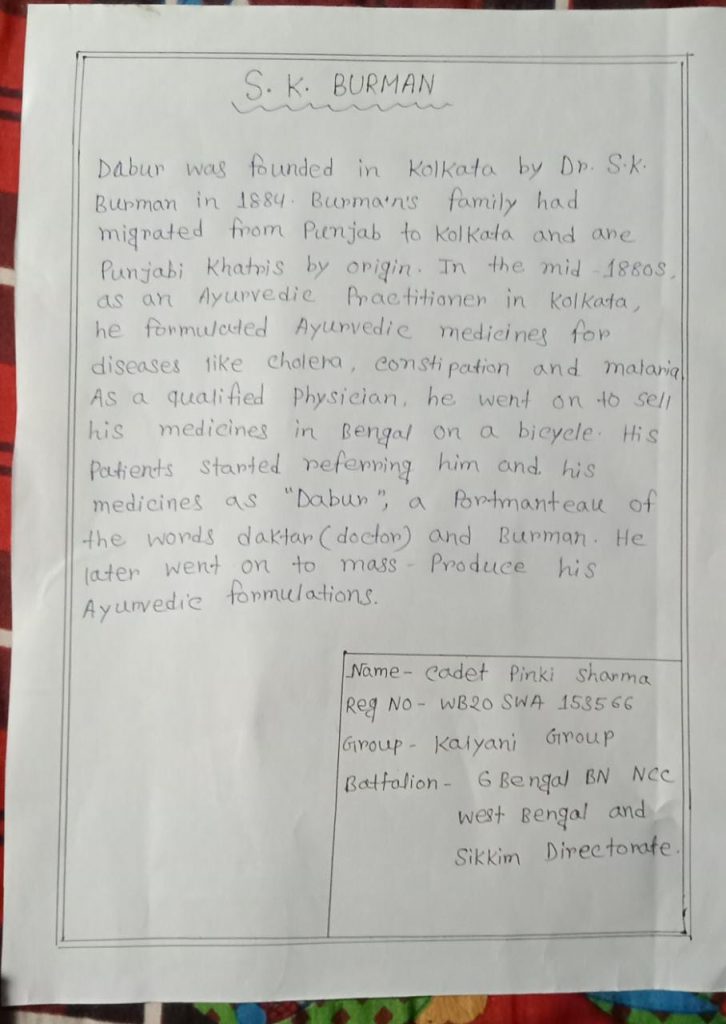 S. K. BURMAN
Dabur was founded in Kolkata by Dr. S.K.
Burman in 1884. Burman's family had
migrated from Punjab to Kolkata and are
Punjabi Khatris by origin. In the mid-1880s,
as an Ayurvedic Practitioner in Kolkata,
he formulated Ayurvedic medicines for
diseases like cholera, constipation and malaria
As a qualified Physician, he went on to sell
his medicines in Bengal on a bicycle. His
Patients started referring him and his
medicines as "Dabur", a Portmanteau of
the words daktar (doctor) and Burman. He
later went on to mass-Produce his
Ayurvedic formulations.
Name - Cadet Pinki Sharma
Reg No - WB20 SWA 153566
Group - Kalyani Group
Battalion - 6 Bengal BN NCC
West Bengal and
Sikkim Directorate.